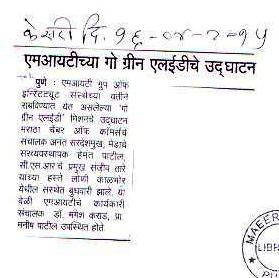 केसरी दि. १६-०४-२०१५
एमआयटीच्या गो ग्रीन एलईडीचे उद्घाटन
पुणे : एमआयटी ग्रुप ऑफ
इन्स्टिट्यूट संस्थेच्या वतीने
राबविण्यात येत असलेल्या 'गो
ग्रीन एलईडी' मिशनचे उद्घाटन
मराठा चेंबर ऑफ कॉमर्सचे
संचालक अनंत सरदेशमुख, मेडाचे
सरव्यवस्थापक हेमंत पाटील,
सी.एस.आरचे प्रमुख संजीप तारे
यांच्या हस्ते लोणी काळभोर
येथील संस्थेत बुधवारी झाले. या
वेळी एमआयटीचे कार्यकारी
संचालक डॉ. मंगेश कराड, प्रा.
मनीष पाटील उपस्थित होते.
MAEER
LIBR